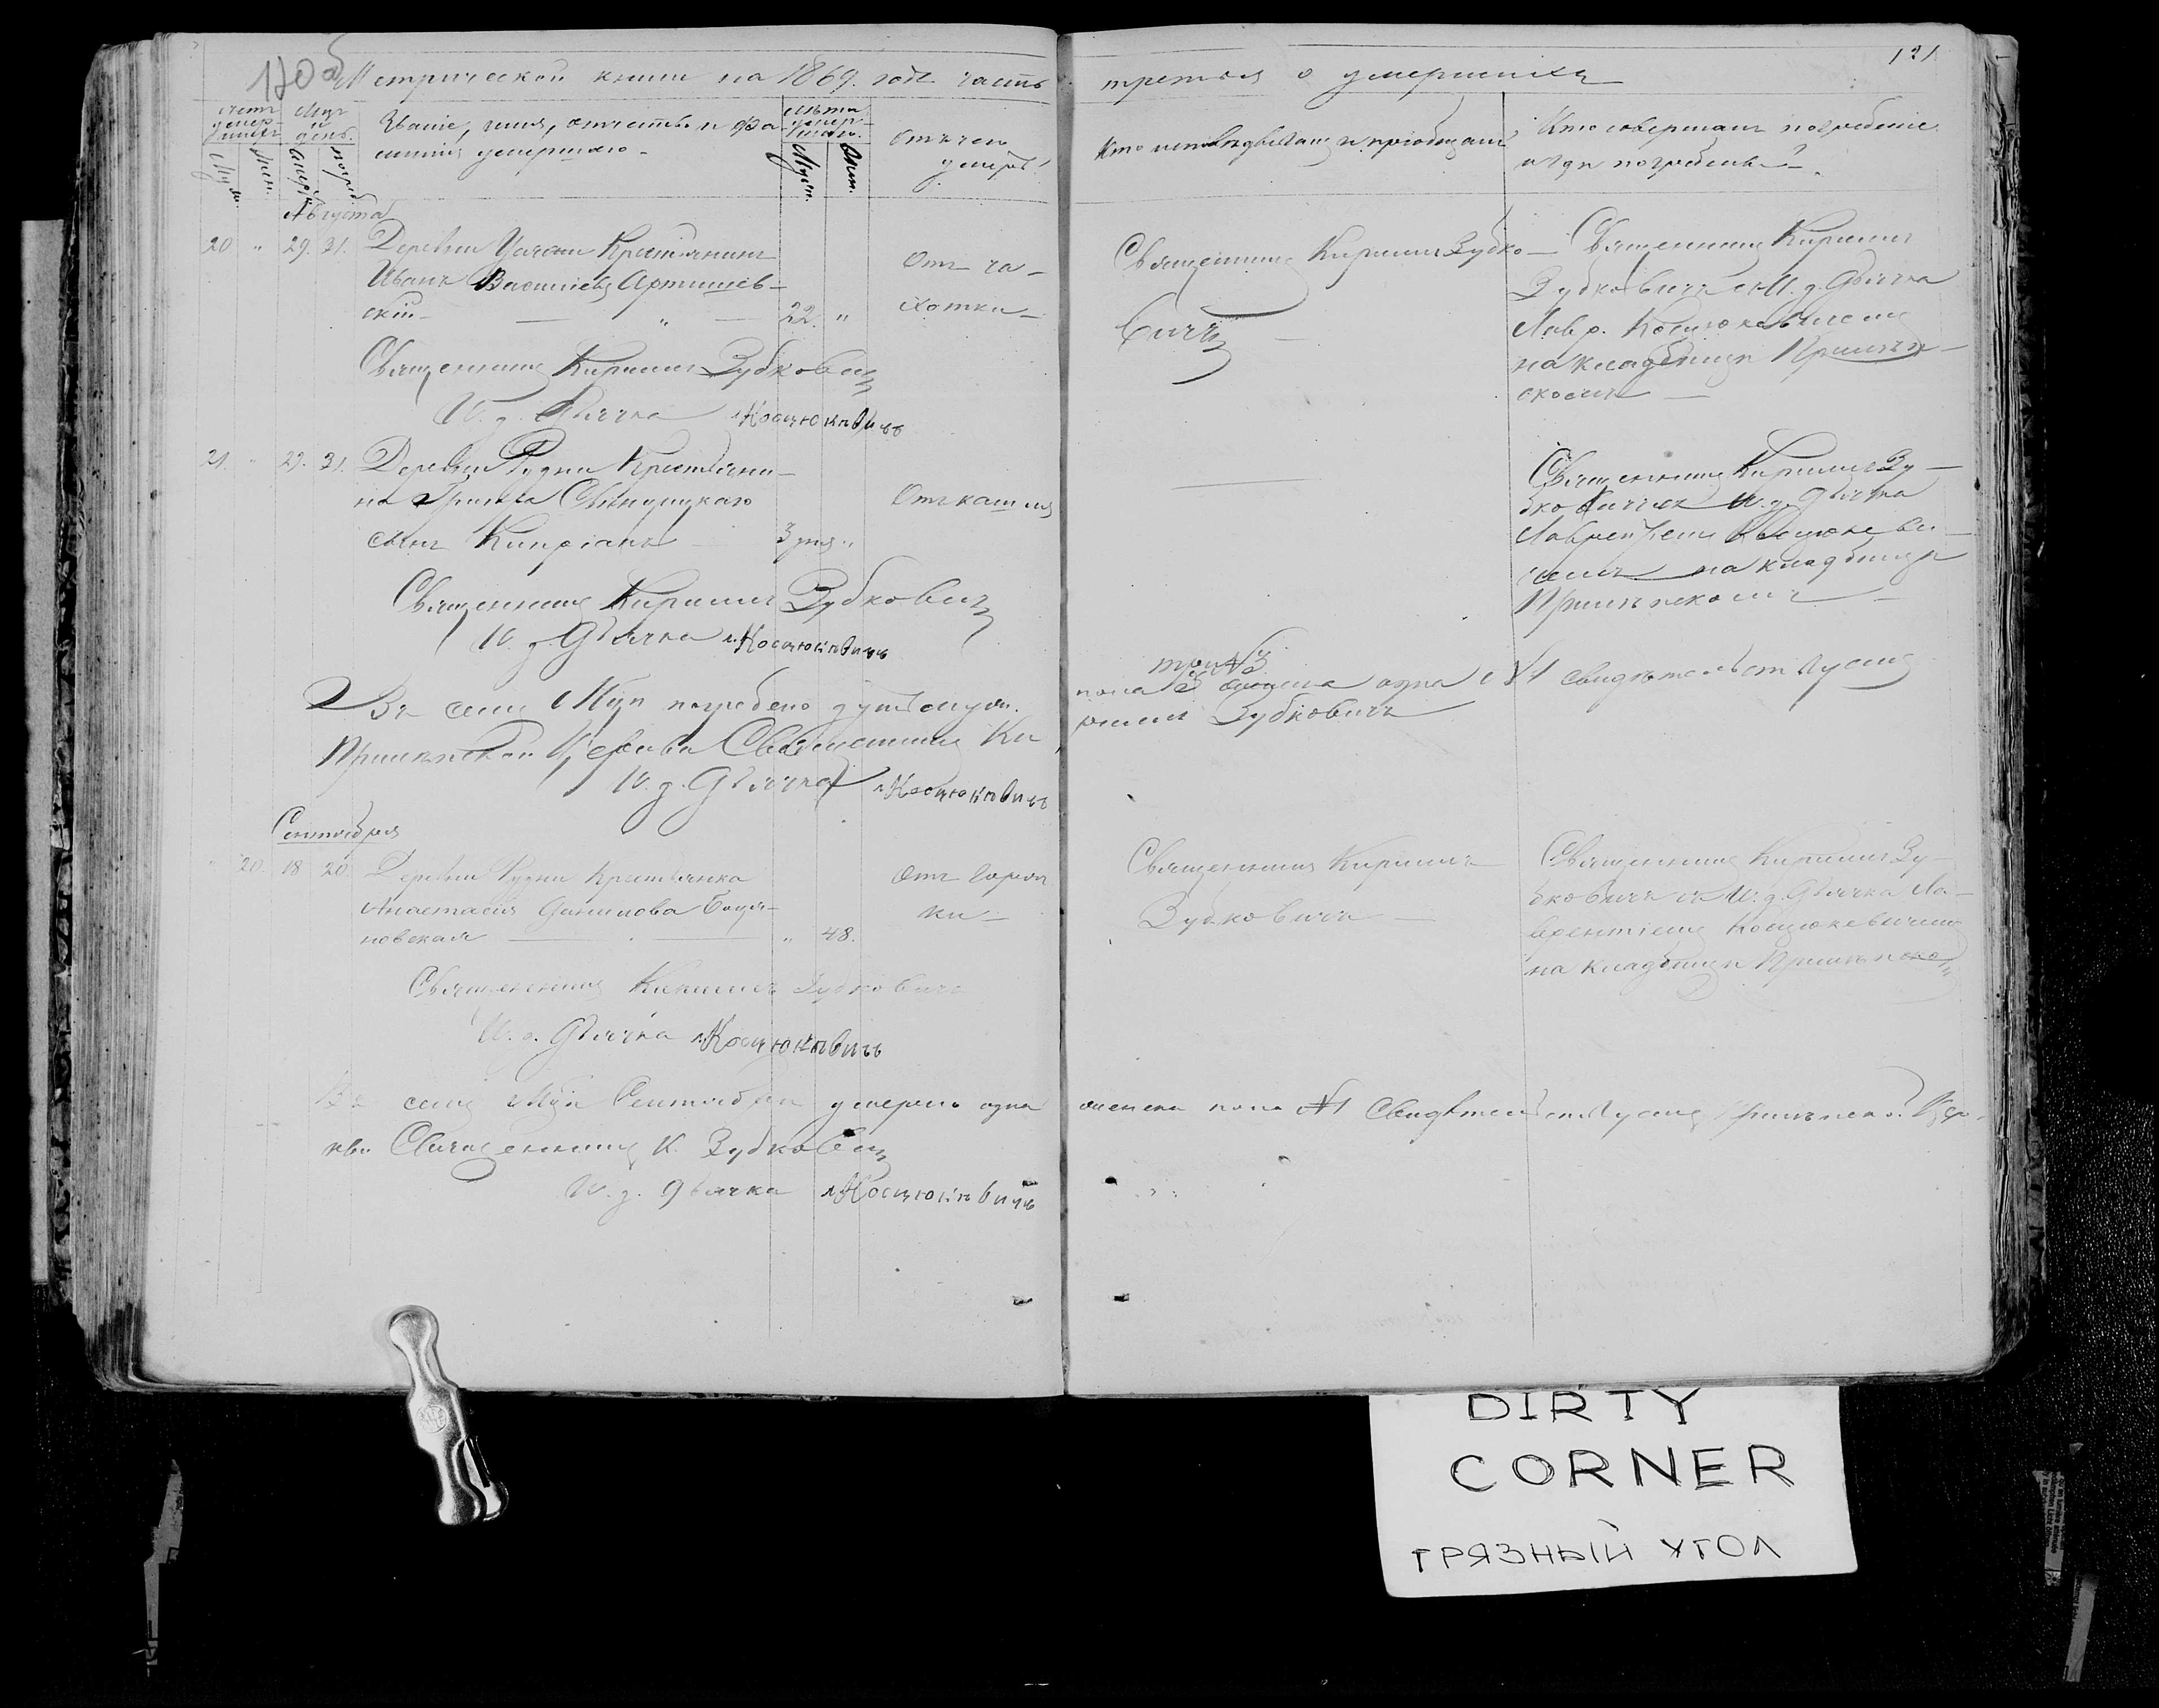 120 об
Метрической книги на 1869. годъ часть третья о умершихъ
121
Счетъ умер-шихъ
Муж.
Жен.
Мцъ и день.
смерт.
погреб.
Званіе, имя, отчество и фа-
милія умершаго.
Лѣта умер-шаго.
Муж.
Жен.
Отъ чего
умеръ?
Кто исповѣдывалъ и пріобщалъ?
Кто совершалъ погребеніе
и гдѣ погребены?
Августа
20 " 29. 31. Деревни Крестьянинъ
Иванъ Васильевъ Артишев-
скій — " — 22. "
Отъ ча-
хотки
Священникъ Кириллъ Зубко-
вичъ
Священникъ Кириллъ
Зубковичъ съ И. д. Дьячка
Лавр. Косцюкевичемъ
на кладбищѣ
скомъ
Священникъ Кириллъ Зубковичъ
И. д. Дьячка Л. Косцюкѣвичъ
21. " 29. 31. Деревни Рудни Крестьяни-
на
сынъ Кипріанъ 3 дня "
Отъ кашля
Священникъ Кириллъ Зу-
бковичъ съ И. д. Дьячка
Лаврентіемъ Косцюкеви-
чемъ на кладбищѣ
Священникъ Кириллъ Зубковичъ
И. д. Дьячка Л. Косцюкѣвичъ
Въ семъ Мцѣ погребено душъ муж. пола три №3 одна №1 свидѣтельствуемъ
Церкви Священникъ Кириллъ Зубковичъ
И. д. Дьячка Л. Косцюкѣвичъ
Сентября
" 20. 18 20. Деревни Рудни Крестьянка
Анастасія Данилова
новская — " 48.
Отъ горяч
ки
Священникъ Кириллъ
Зубковичъ
Священникъ Кириллъ Зу-
бковичъ съ И. д. Дьячка Ла-
врентіемъ Косцюкевичемъ
на кладбищѣ
Священникъ Кириллъ Зубковичъ
И. д. Дьячка Л. Косцюкѣвичъ
Въ семъ Мцѣ Сентябрѣ умерла одна женска пола №1 Свидѣтельствуемъ Цер-
кви Священникъ К. Зубковичъ
И. д. Дьячка Л. Косцюкѣвичъ
DIRTY
CORNER
ГРЯЗНЫЙ УГОЛ